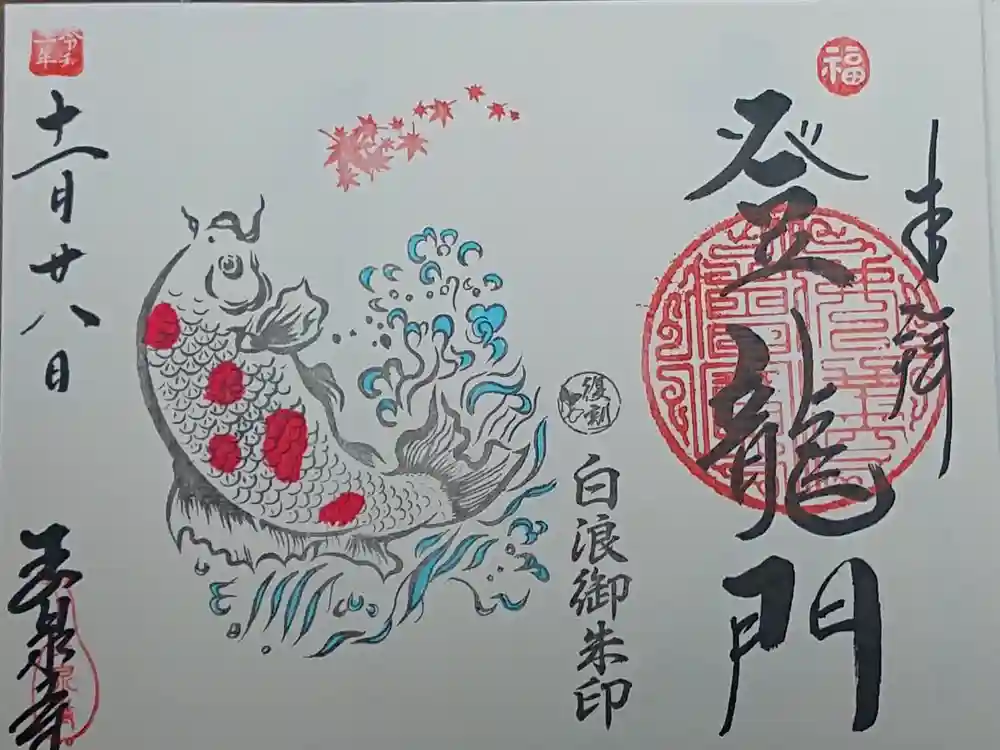 奉拝
福
登龍門
復刻
白浪御朱印
令和
二年
十一月廿八日
玉泉寺